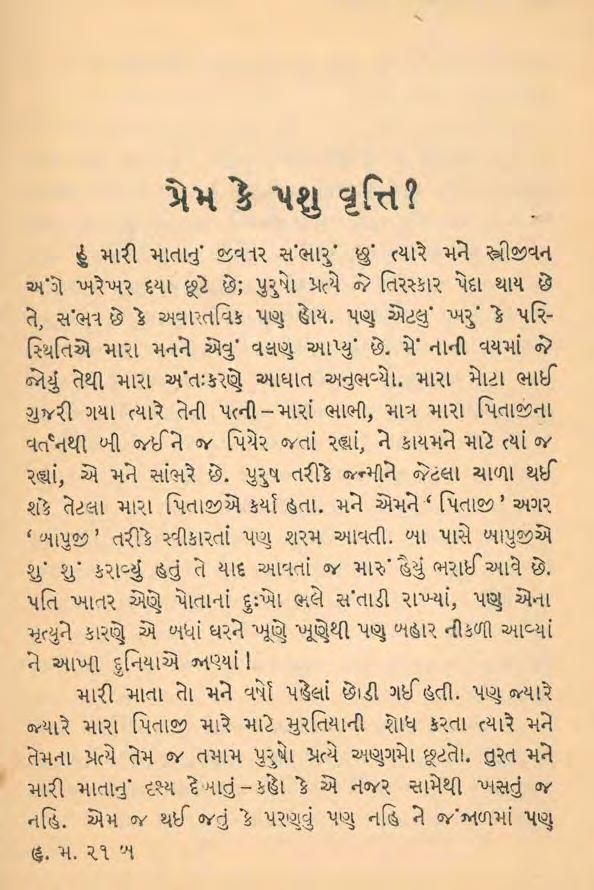 પ્રેમ કે પશુ વૃત્તિ?
હું મારી માતાનું જીવતર સંભારું છું ત્યારે મને સ્ત્રીજીવન
અંગે ખરેખર દયા છૂટે છે; પુરુષો પ્રત્યે જે તિરસ્કાર પેદા થાય છે
તે, સંભવ છે કે અવાસ્તવિક પણ હોય. પણ એટલું ખરું કે પરિ-
સ્થિતિએ મારા મનને એવું વલણ આપ્યું છે. મેં નાની વયમાં જે
જોયું તેથી મારા અંતઃકરણે આઘાત અનુભવ્યો. મારા મોટા ભાઈ
ગુજરી ગયા ત્યારે તેની પત્ની – મારાં ભાભી, માત્ર મારા પિતાજીના
વર્તનથી બી જઈને જ પિયેર જતાં રહ્યાં, ને કાયમને માટે ત્યાં જ
રહ્યાં, એ મને સાંભરે છે. પુરુષ તરીકે જન્મીને જેટલા ચાળા થઈ
શકે તેટલા મારા પિતાજીએ કર્યા હતા. મને એમને ‘ પિતાજી ’ અગર
‘ બાપુજી ’ તરીકે સ્વીકારતાં પણ શરમ આવતી. બા પાસે બાપુજીએ
શું શું કરાવ્યું હતું તે યાદ આવતાં જ મારું હૈયું ભરાઈ આવે છે.
પતિ ખાતર એણે પોતાનાં દુઃખો ભલે સંતાડી રાખ્યાં, પણ એના
મૃત્યુને કારણે એ બધાં ઘરને ખૂણે ખૂણેથી પણ બહાર નીકળી આવ્યાં
ને આખી દુનિયાએ જાણ્યાં !
મારી માતા તો મને વર્ષો પહેલાં છોડી ગઈ હતી. પણ જ્યારે
જ્યારે મારા પિતાજી મારે માટે મુરતિયાની શોધ કરતા ત્યારે મને
તેમના પ્રત્યે તેમ જ તમામ પુરુષો પ્રત્યે અણગમો છૂટતો. તુરત મને
મારી માતાનું દૃશ્ય દેખાતું – કહો કે એ નજર સામેથી ખસતું જ
નહિ. એમ જ થઈ જતું કે પરણવું પણ નહિ ને જંજાળમાં પણ
હ. મ. ૨૧ બ